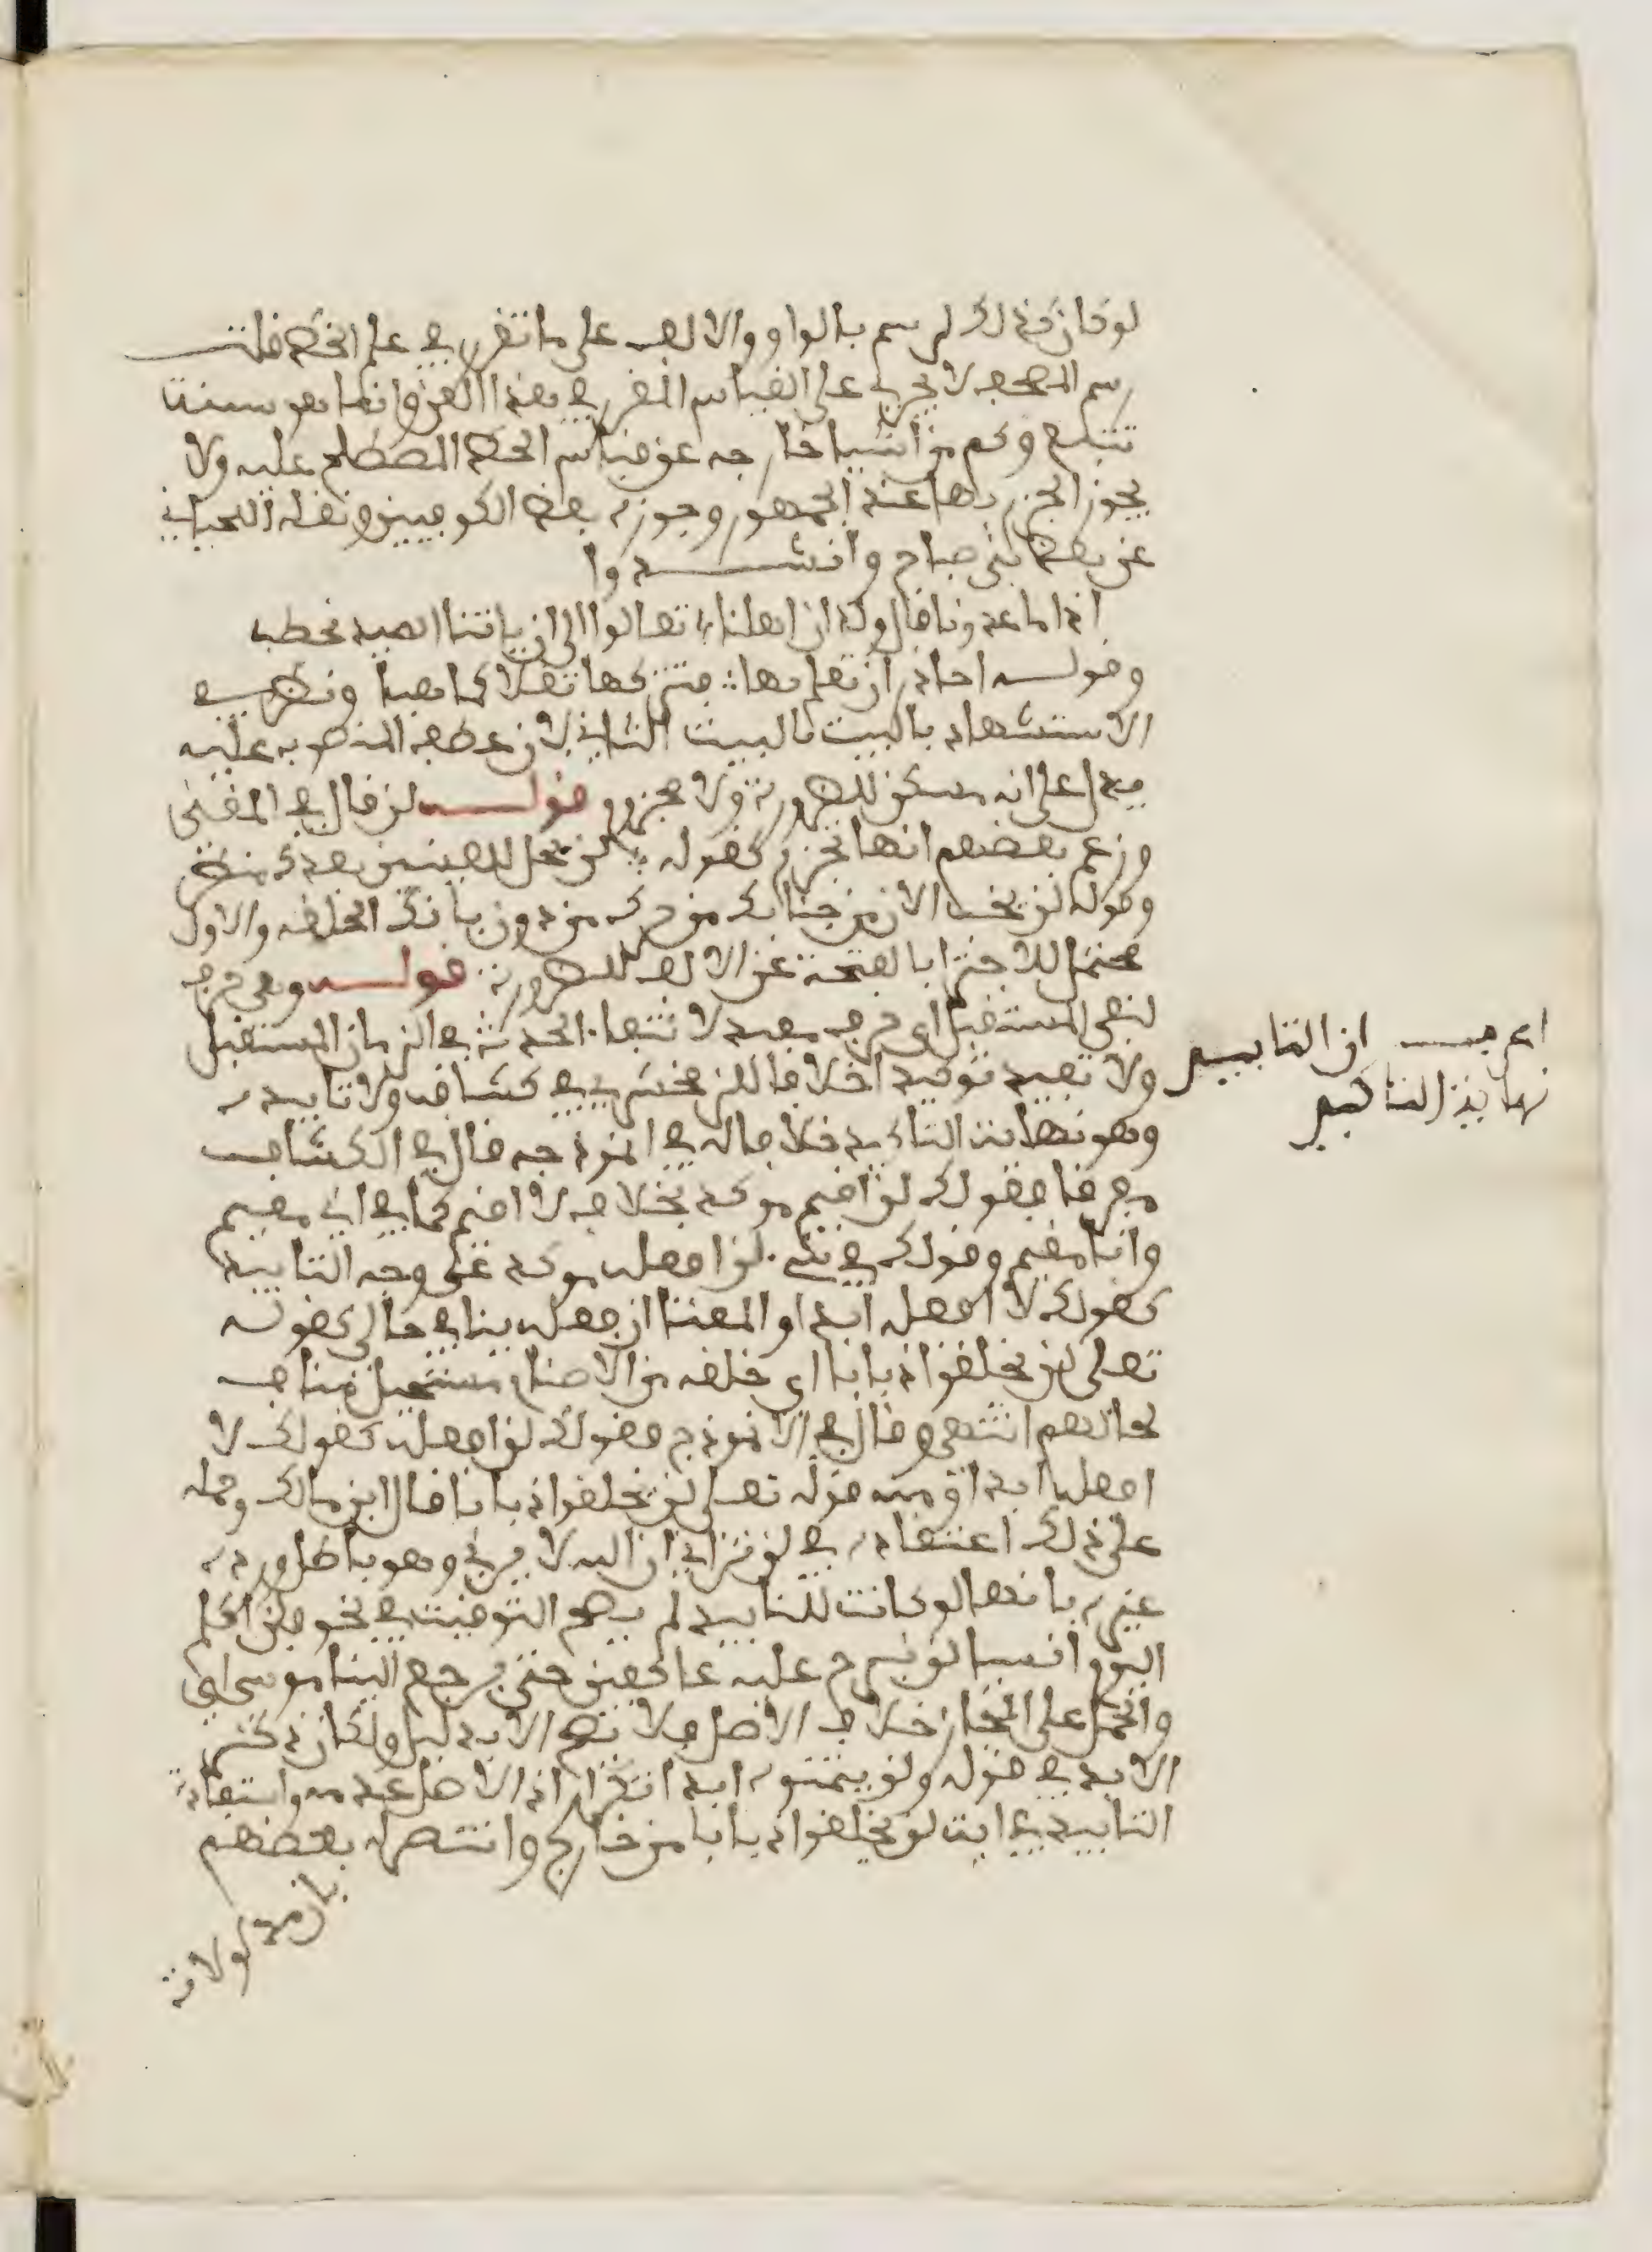 لو كان كذلك لم يرسم بالواو والالف على ما تقرر في علم الخط قلت
رسم المصحف لا يجري على القياس المقرر في هذا الفن وانما هو سنة
تتبع وكم من اشيا خارجه عن قياس الخط المصطلح عليه ولا
يجوز الجزم بها عند الجمهور وجوزه بعض الكوفيين ونقله اللحياني
عن بعض بني صباح وانشدوا
اذا ما غدونا قال ولدان اهلنا ؞ تعالوا الى ان ياتنا الصيد نحطب
وقوله احاذر ان تعلم بها ؞ فتتركها ثقلا كما هيا ونظر في
الاستشهاد بالبيت فالبيت الثاني لان عطف المنصوب عليه
يدل على انه مسكن للضرورة ولا مجزوم قوله لن قال في المغنى
وزعم بعضهم انها تجزم كقوله ؞ لن يحل للعينين بعدك منظر
وقوله لن يخب الان من رجائك من حرك من دون بابك الحلقه والاول
محتمل للاجتزا بالفتحة عن الالف للضرورة قوله وهي حرف
لنفي المستقبل اي حرف يفيد لانتفاء الحدث في الزمان المستقبل
ولا تفيد توكيد اخلافا للزمخشري في كشافه ولا تابيده
وهو نهاية التاكيد خلافا له في انموذجه قال في الكشاف
مفرقا فقولك لن اقيم موكد بخلاف لا اقيم كما في اني مقيم
وانا مقيم وقولك في شيء لن افعله موكد على وجه التابيد
كقولك لا افعله ابدا والمعنا ان فعله ينافي حالي كقوله
تعلى لن يخلقوا ذبابا اي خلقه من الاصنام مستحيل مناف
لحالهم انتهى وقال في الانموذج فقولك لن افعله كقولك لا
افعله ابدا ومنه قوله تعلى لن يخلقوا ذبابا قال ابن مالك وحمله
على ذلك اعتقاده في لن تراني ان الله لا يرى وهو باطل ورده
غيره بانها لو كانت للتابيد لم يصح التوقيت في نحو فلن اكلم
اليوم انسيا لن نبرح عليه عاكفين حتى يرجع الينا موسى اي
والحمل على المجاز خلاف الاصل ولا يصح الا بدليل ولكان ذكر
الابد في قوله ولن يتمنوه ابدا تكرار اذ الاصل عدمه واستفادة
التابيد في اية لن يخلقوا ذبابا من خارج وانتصر له بعضهم
بان
لولا
اعرف ان التابيد
نهاية التاكيد